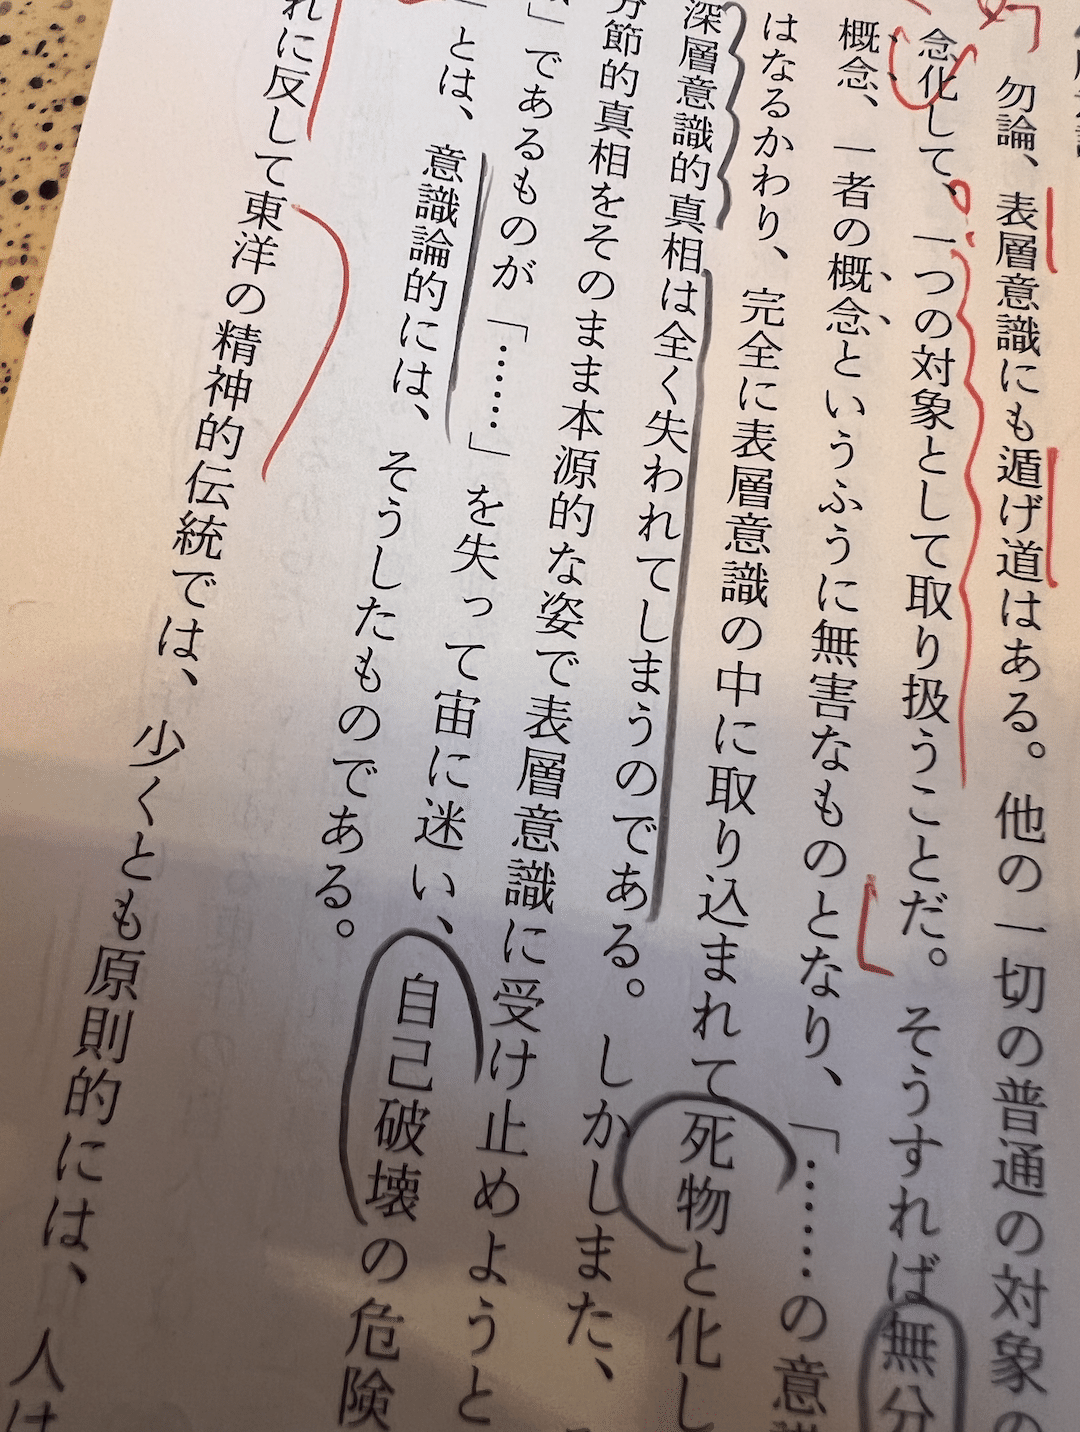 勿論、表層意識にも遁げ道はある。他の一切の普通の対象の
念化して、一つの対象として取り扱うことだ。そうすれば無分
概念、一者の概念というふうに無害なものとなり、「……の意識
はなるかわり、完全に表層意識の中に取り込まれて死物と化し
深層意識的真相は全く失われてしまうのである。しかしまた、
分節的真相をそのまま本源的な姿で表層意識に受け止めようと
」であるものが「……」を失って宙に迷い、自己破壊の危険
」とは、意識論的には、そうしたものである。
れに反して東洋の精神的伝統では、少くとも原則的には、人は